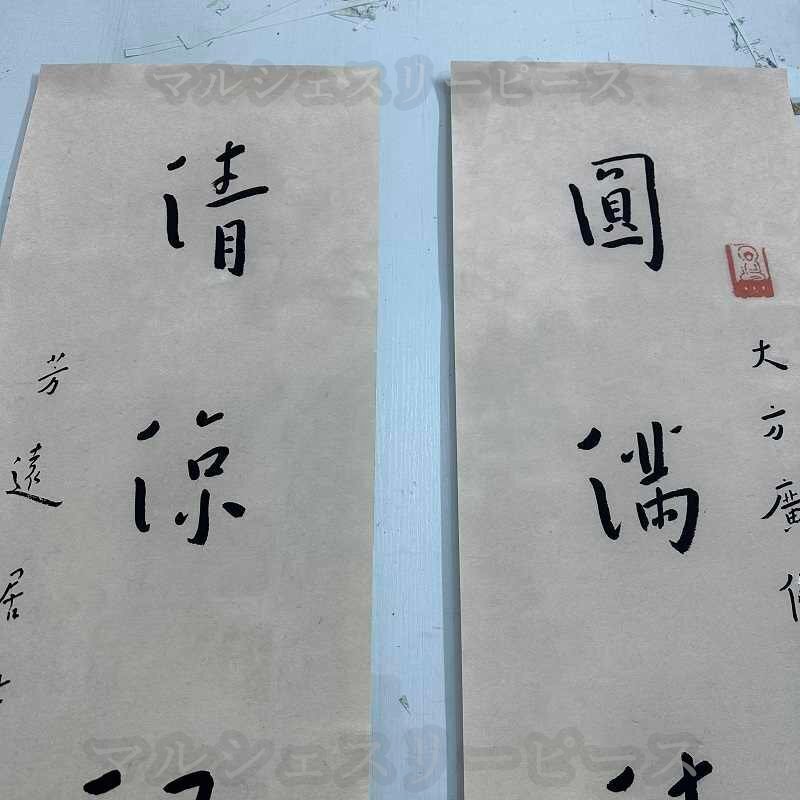 マルシェスリーピース
大方廣
圓滿
清涼
芳遠居
マルシェスリーピース